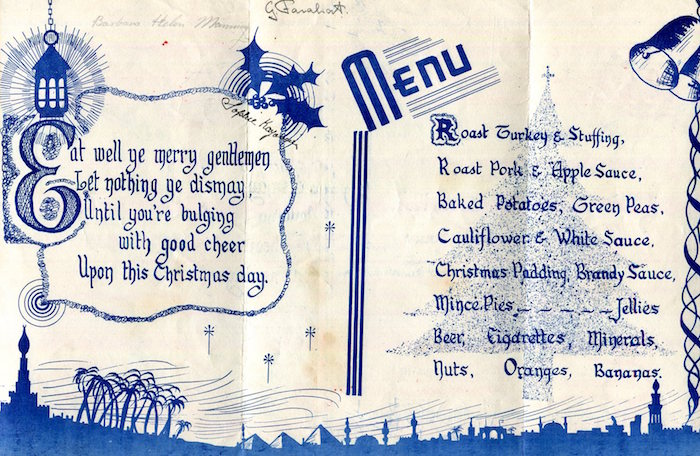 Barbara Helen
G
Sophie
Eat well ye merry gentlemen
Let nothing ye dismay,
Until you're bulging
with good cheer
Upon this Christmas day.
Menu
Roast Turkey & Stuffing,
Roast Pork & Apple Sauce,
Baked Potatoes, Green Peas,
Cauliflower & White Sauce,
Christmas Padding, Brandy Sauce,
Mince Pies _ _ _ _ _ Jellies
Beer, Cigarettes, Minerals,
Nuts, Oranges, Bananas.